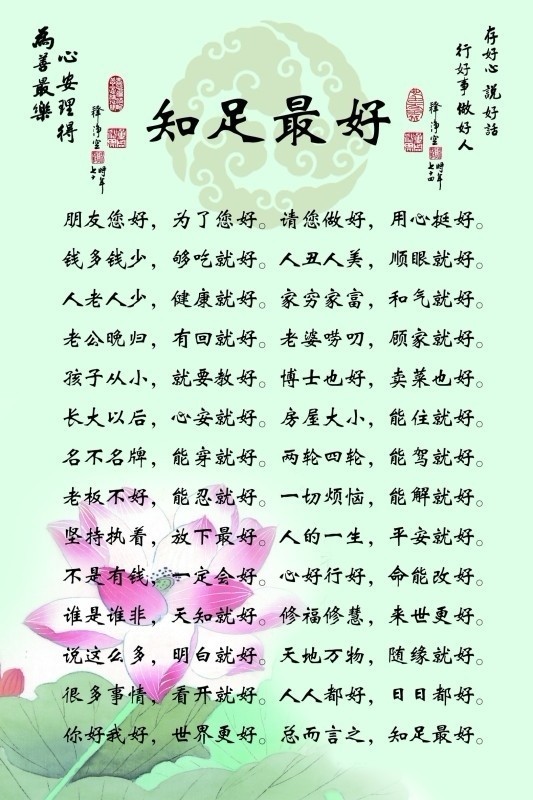 存好心說好話
行好事做好人
徐淨空
時年
七十四
知足最好
心安理得
為善最樂
徐淨空
時年
七十
朋友您好，为了您好。请您做好，用心挺好。
钱多钱少，够吃就好。人丑人美，顺眼就好。
人老人少，健康就好。家穷家富，和气就好。
老公晚归，有回就好。老婆唠叨，顾家就好。
孩子从小，就要教好。博士也好，卖菜也好。
长大以后，心安就好。房屋大小，能住就好。
名不名牌，能穿就好。两轮四轮，能驾就好。
老板不好，能忍就好。一切烦恼，能解就好。
坚持执着，放下最好。人的一生，平安就好。
不是有钱，一定会好。心好行好，命能改好。
谁是谁非，天知就好。修福修慧，来世更好。
说这么多，明白就好。天地万物，随缘就好。
很多事情，看开就好。人人都好，日日都好。
你好我好，世界更好。总而言之，知足最好。